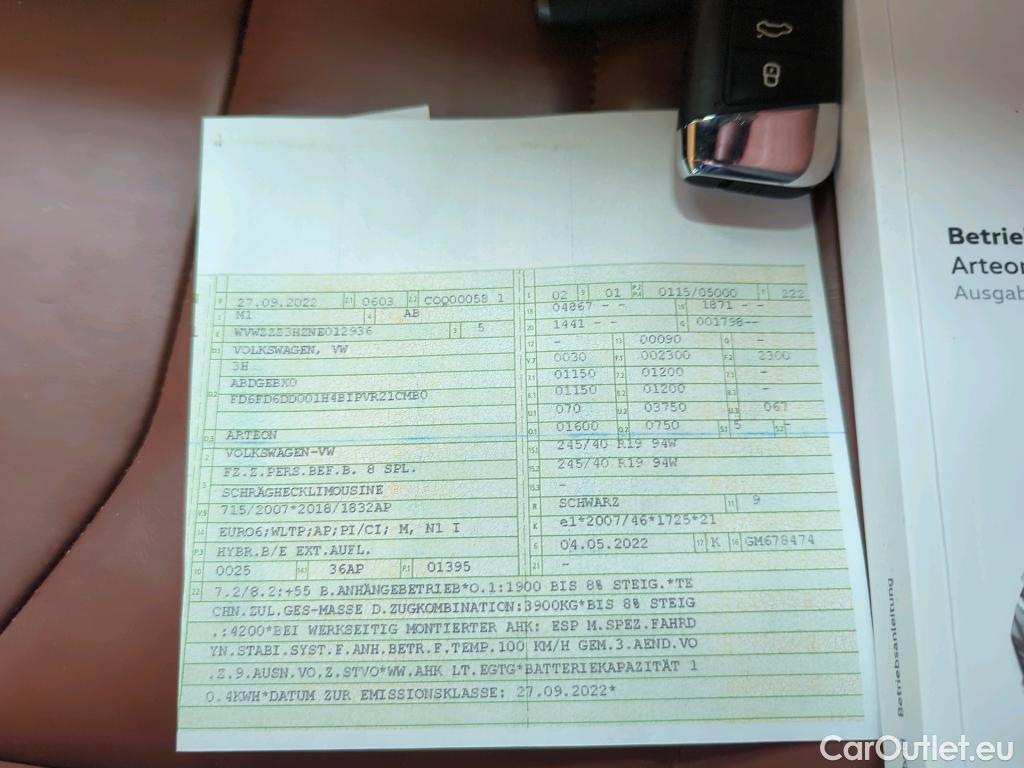 B 27.09.2022 2.1 0603 2.2 COQ00058 1
J M1 4 AB
E WVWZZZ3HZNE012936 3 5
D.1 VOLKSWAGEN, VW
3H
D.2 ABDGEBX0
FD6FD6DD001H4BIPVR21CMB0
D.3 ARTEON
2 VOLKSWAGEN-VW
FZ.Z.PERS.BEF.B. 8 SPL.
5 SCHRÄGHECKLIMOUSINE
V.9 715/2007*2018/1832AP
14 EURO6;WLTP;AP;PI/CI; M, N1 I
P.3 HYBR.B/E EXT.AUFL.
10 0025 14.1 36AP P.1 01395
L 02 9 01 P.2 P.4 0115/05000 T 222
18 04867 - - 19 1871 - -
20 1441 - - G 001798--
12 - 13 00090 Q -
V.7 0030 F.1 002300 F.2 2300
7.1 01150 7.2 01200 7.3 -
8.1 01150 8.2 01200 8.3 -
U.1 070 U.2 03750 U.3 067
O.1 01600 O.2 0750 S.1 5 S.2 -
15.1 245/40 R19 94W
15.2 245/40 R19 94W
15.3 -
R SCHWARZ 11 9
K e1*2007/46*1725*21
6 04.05.2022 17 K 16 GM678474
21 -
22 7.2/8.2:+55 B.ANHÄNGEBETRIEB*O.1:1900 BIS 8% STEIG.*TE
CHN.ZUL.GES-MASSE D.ZUGKOMBINATION:3900KG*BIS 8% STEIG
.:4200*BEI WERKSEITIG MONTIERTER AHK: ESP M.SPEZ.FAHRD
YN.STABI.SYST.F.ANH.BETR.F.TEMP.100 KM/H GEM.3.AEND.VO
.Z.9.AUSN.VO.Z.STVO*WW.AHK LT.EGTG*BATTERIEKAPAZITÄT 1
0.4KWH*DATUM ZUR EMISSIONSKLASSE: 27.09.2022*
Betrie
Arteon
Ausgab
Betriebsanleitung
CarOutlet.eu